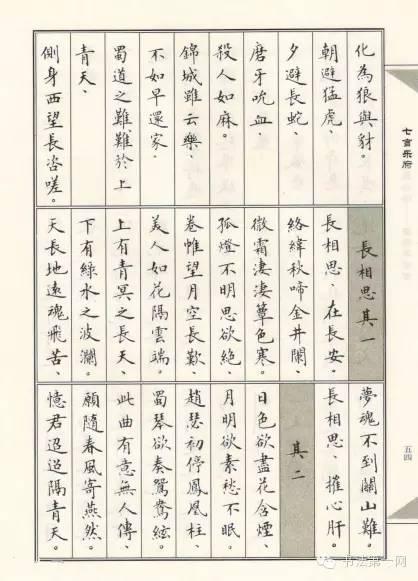 七言樂府
化為狼與豺。
朝避猛虎、
夕避長蛇、
磨牙吮血、
殺人如麻。
錦城雖云樂、
不如早還家。
蜀道之難、難於上
青天、
側身西望長咨嗟。
長相思其一
長相思、在長安。
絡緯秋啼金井闌、
微霜淒淒簟色寒。
孤燈不明思欲絕、
卷帷望月空長歎
美人如花隔雲端。
上有青冥之長天、
下有綠水之波瀾。
天長地遠魂飛苦、
夢魂不到關山難。
長相思、摧心肝。
其二
日色欲盡花含煙、
月明欲素愁不眠。
趙瑟初停鳳凰柱、
蜀琴欲奏鴛鴦絃。
此曲有意無人傳、
願隨春風寄燕然。
憶君迢迢隔青天。
五四
书法第一网